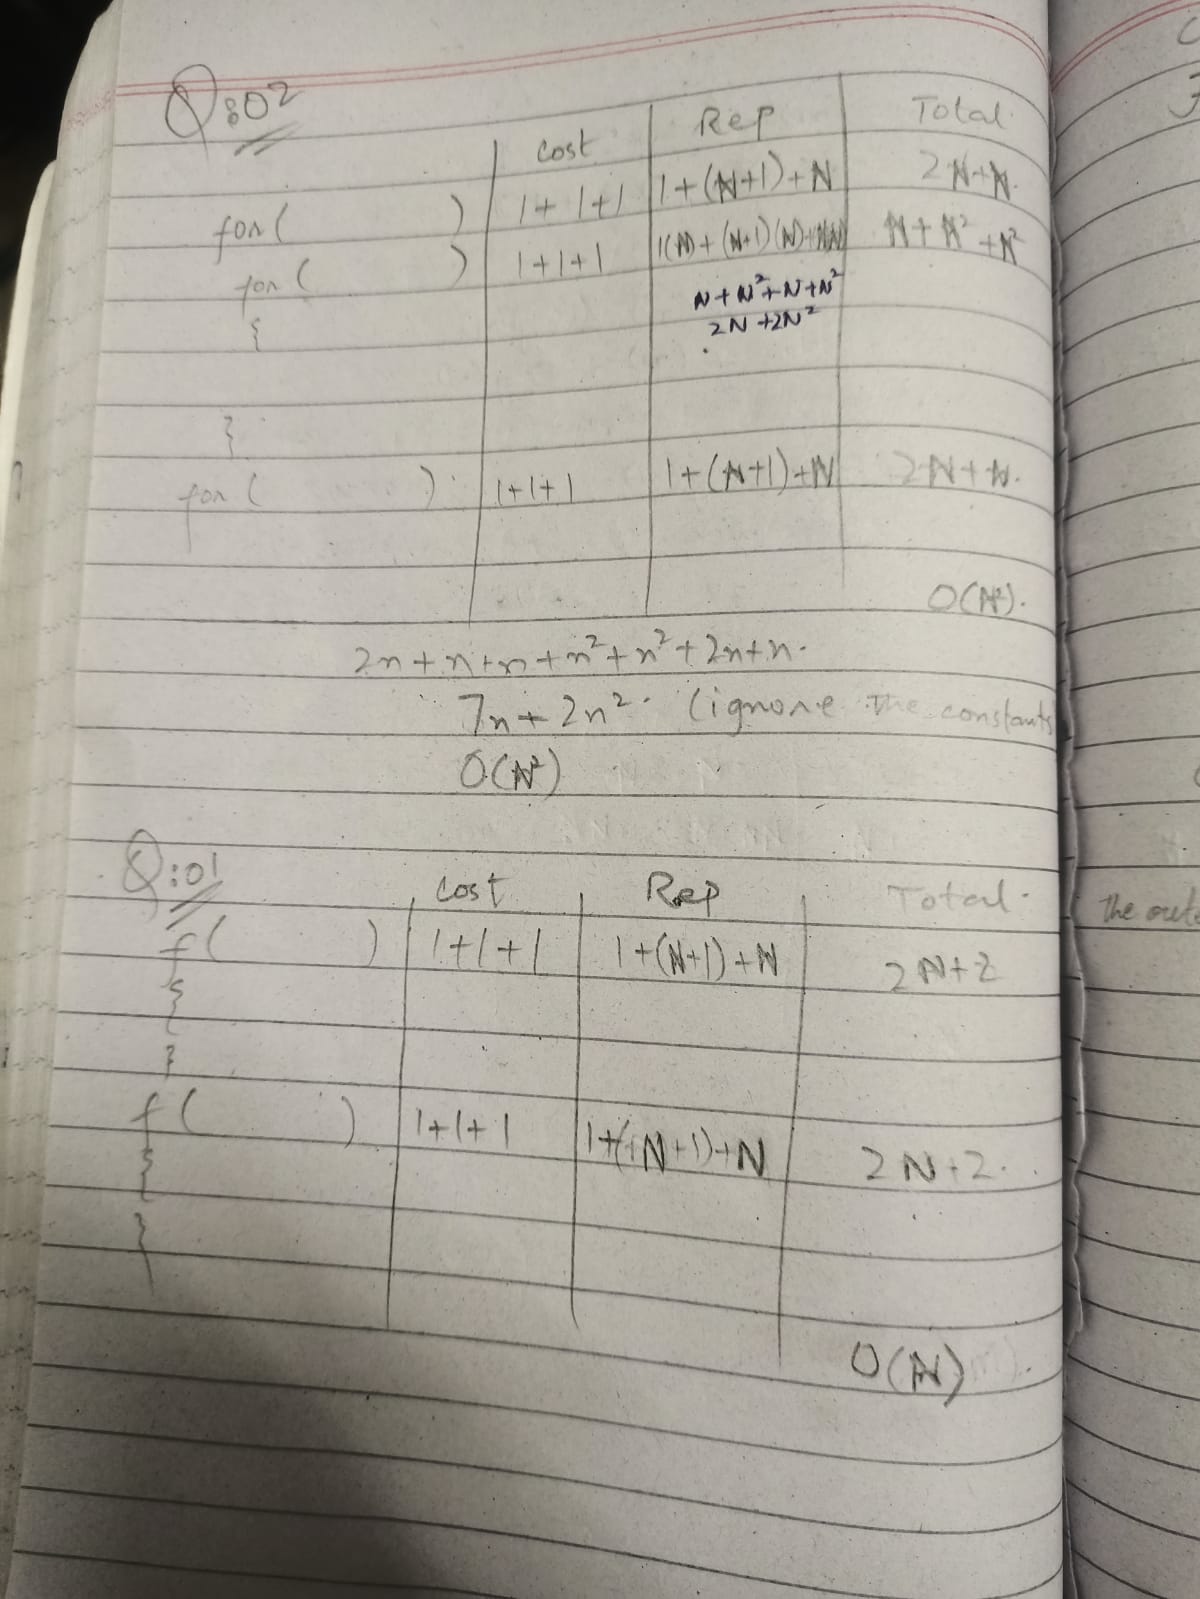 Q:02
Cost Rep Total
for( ) 1+1+1 1+(N+1)+N 2N+N.
for( ) 1+1+1 1(N)+(N+1)(N)+ N+N²+N²
{ N+N²+N+N²
2N+2N²
}
for( ) 1+1+1 1+(N+1)+N 2N+N.
O(N²).
2n+n+n+n²+n²+2n+n.
7n+2n². (ignore the constants
O(N²)
Q:01
Cost Rep Total
f( ) 1+1+1 1+(N+1)+N 2N+2
{
}
f( ) 1+1+1 1+(+N+1)+N 2N+2.
{
}
O(N)
the oute